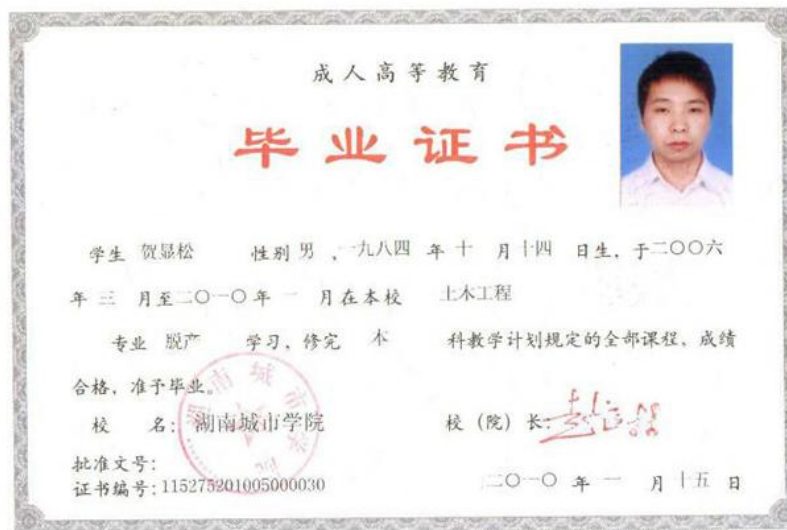 成人高等教育
毕业证书
学生 贺显松 性别 男 ,一九八四 年 十 月 十四 日生，于二〇〇六
年 三 月至二〇一〇年 一 月在本校 土木工程
专业 脱产 学习，修完 本 科教学计划规定的全部课程，成绩
合格，准予毕业。
校 名: 湖南城市学院 校（院）长:
批准文号:
证书编号:115275201005000030 二〇一〇 年 一 月 十五 日
湖南城市学院